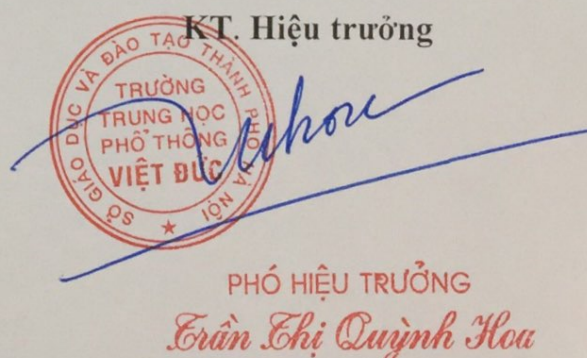 KT. Hiệu trưởng
SỞ GIÁO DỤC VÀ ĐÀO TẠO THÀNH PHỐ HÀ NỘI
TRƯỜNG
TRUNG HỌC
PHỔ THÔNG
VIỆT ĐỨC
PHÓ HIỆU TRƯỞNG
Trần Thị Quỳnh Hoa